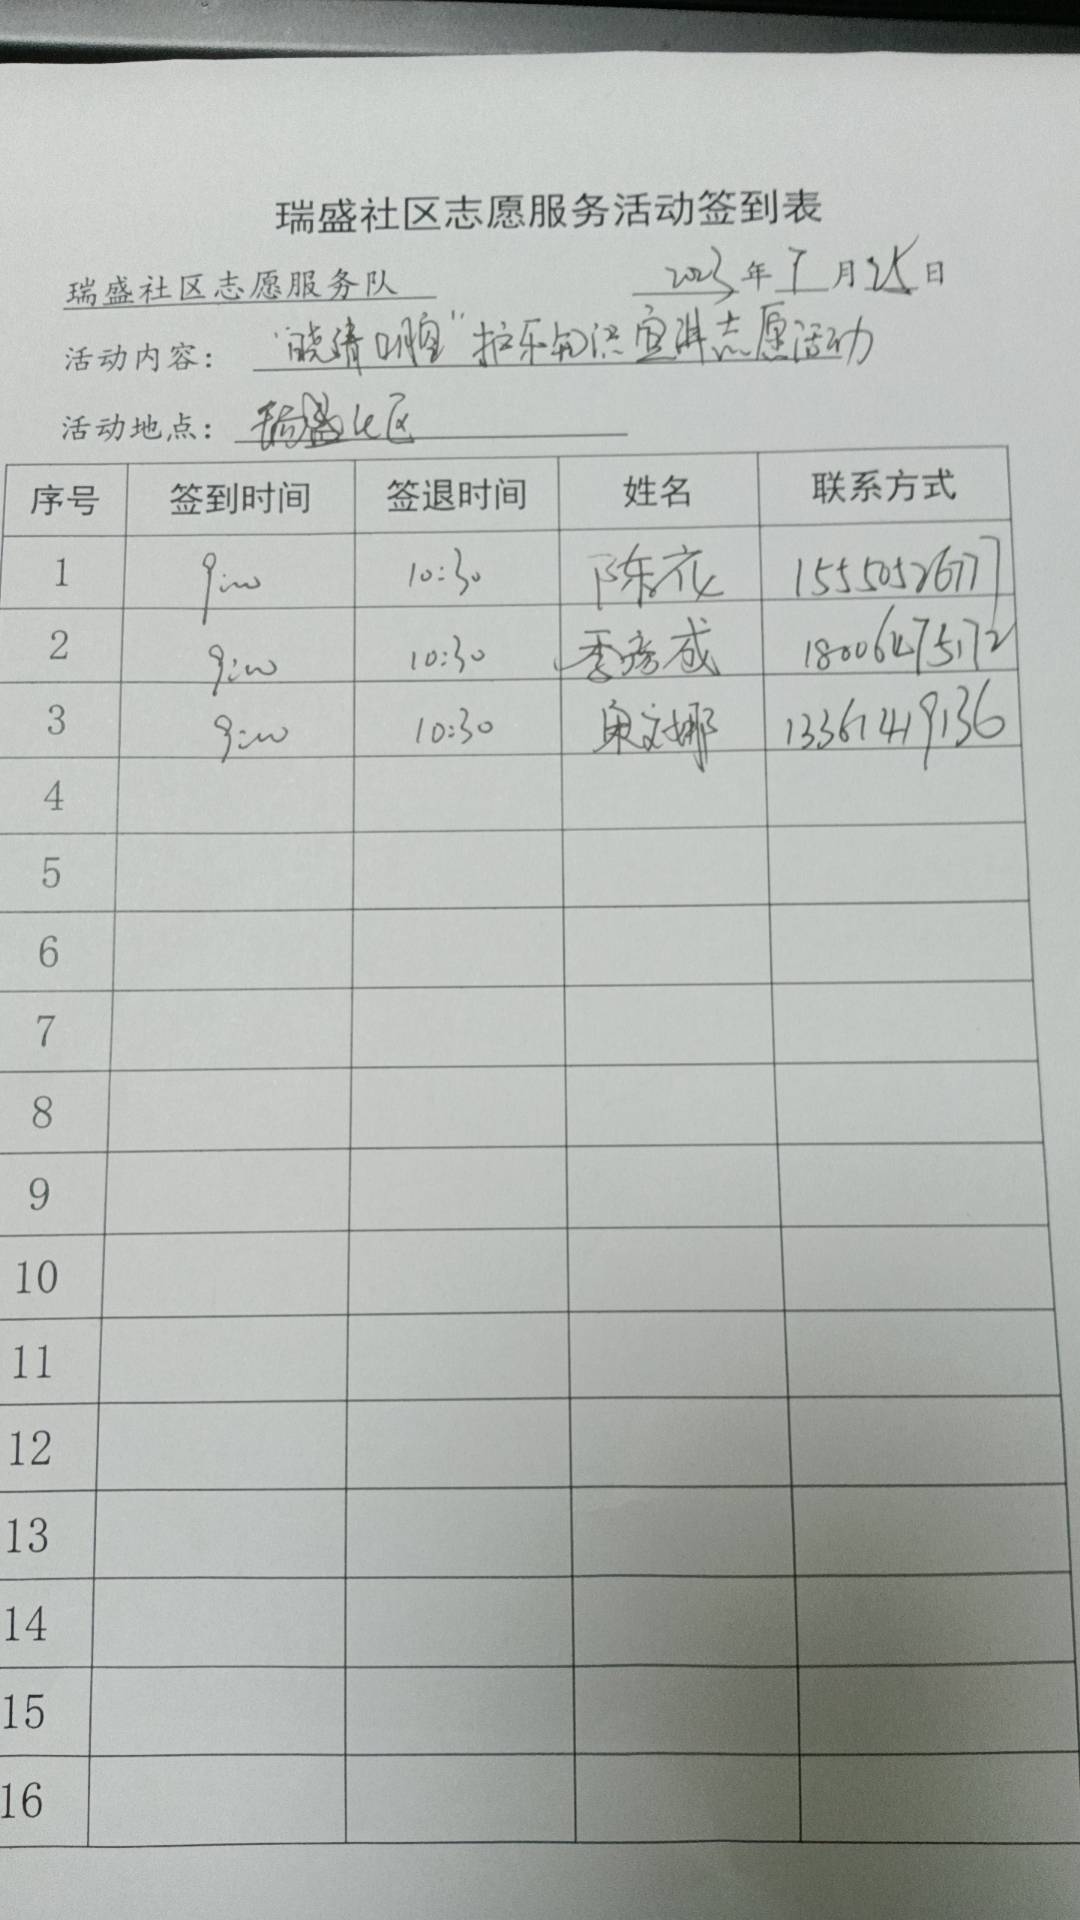 瑞盛社区志愿服务活动签到表
瑞盛社区志愿服务队 2023年 月25日
活动内容： 宣讲志愿活动
活动地点：瑞盛社区
序号 签到时间 签退时间 姓名 联系方式
1 9:00 10:30 陈 15550526777
2 9:00 10:30 季彦成 18006475172
3 9:00 10:30 文娜 13361419136
4
5
6
7
8
9
10
11
12
13
14
15
16